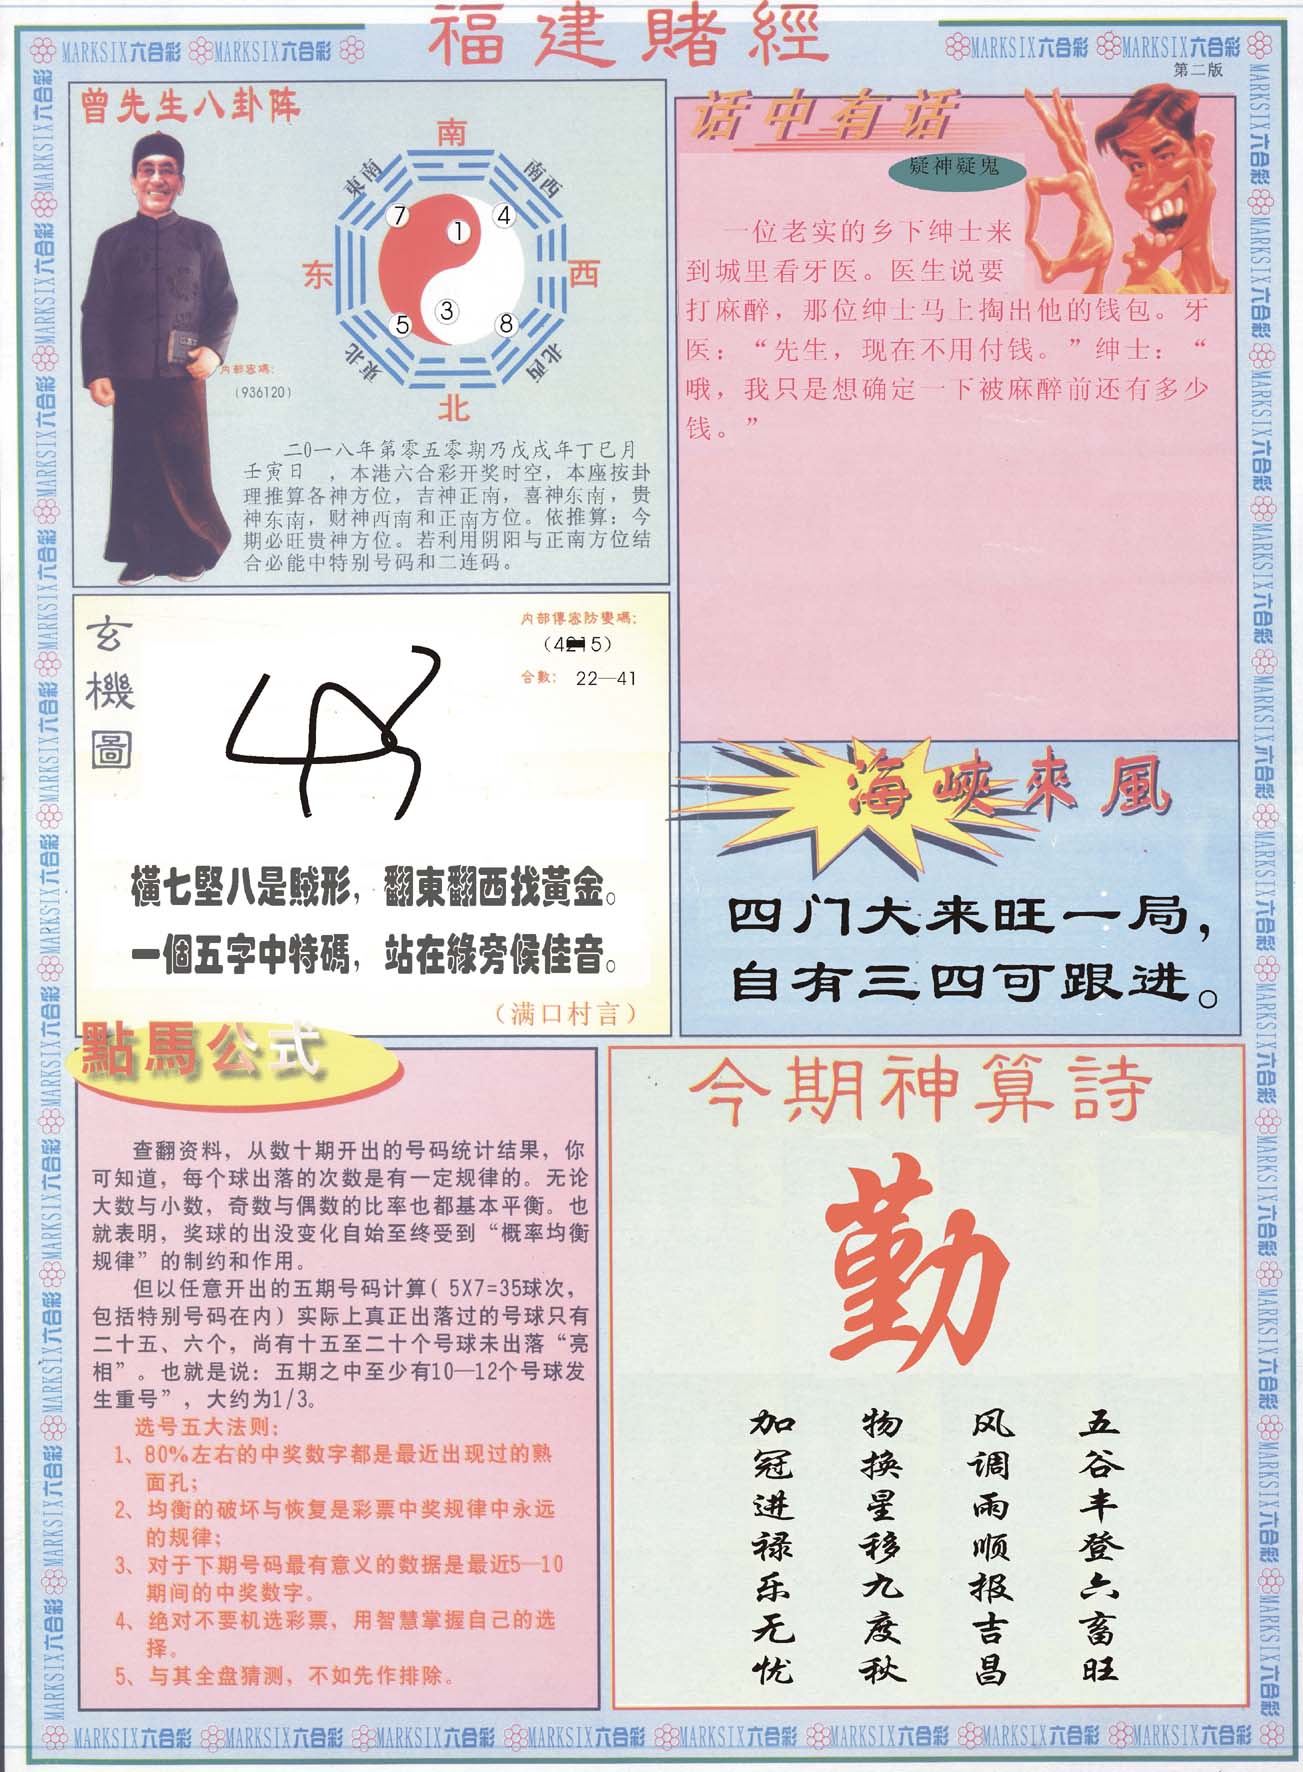 福建賭經
MARKSIX六合彩 MARKSIX六合彩
MARKSIX六合彩 MARKSIX六合彩
第二版
曾先生八卦阵
南
東南
南西
7
1
4
东
西
5
3
8
東北
北西
北
内部密碼:
(936120)
二0一八年第零五零期乃戊戌年丁巳月
壬寅日 ,本港六合彩开奖时空,本座按卦
理推算各神方位,吉神正南,喜神东南,贵
神东南,财神西南和正南方位。依推算:今
期必旺贵神方位。若利用阴阳与正南方位结
合必能中特别号码和二连码。
话中有话
疑神疑鬼
一位老实的乡下绅士来
到城里看牙医。医生说要
打麻醉,那位绅士马上掏出他的钱包。牙
医:“先生,现在不用付钱。”绅士:“
哦,我只是想确定一下被麻醉前还有多少
钱。”
玄機圖
内部傳密防變碼:
合數: 22—41
橫七堅八是賊形,翻東翻西找黃金。
一個五字中特碼,站在綠旁候佳音。
(满口村言)
海峽來風
四门大来旺一局,
自有三四可跟进。
點馬公式
查翻资料,从数十期开出的号码统计结果,你
可知道,每个球出落的次数是有一定规律的。无论
大数与小数,奇数与偶数的比率也都基本平衡。也
就表明,奖球的出没变化自始至终受到“概率均衡
规律”的制约和作用。
但以任意开出的五期号码计算(5X7=35球次,
包括特别号码在内)实际上真正出落过的号球只有
二十五、六个,尚有十五至二十个号球未出落“亮
相”。也就是说:五期之中至少有10—12个号球发
生重号”,大约为1/3。
选号五大法则:
1、80%左右的中奖数字都是最近出现过的熟
面孔;
2、均衡的破坏与恢复是彩票中奖规律中永远
的规律;
3、对于下期号码最有意义的数据是最近5—10
期间的中奖数字。
4、绝对不要机选彩票,用智慧掌握自己的选
择。
5、与其全盘猜测,不如先作排除。
今期神算詩
勤
五谷丰登六畜旺
风调雨顺报吉昌
物换星移九度秋
加冠进禄乐无忧
MARKSIX六合彩 MARKSIX六合彩 MARKSIX六合彩 MARKSIX六合彩 MARKSIX六合彩 MARKSIX六合彩 MARKSIX六合彩 MARKSIX六合彩